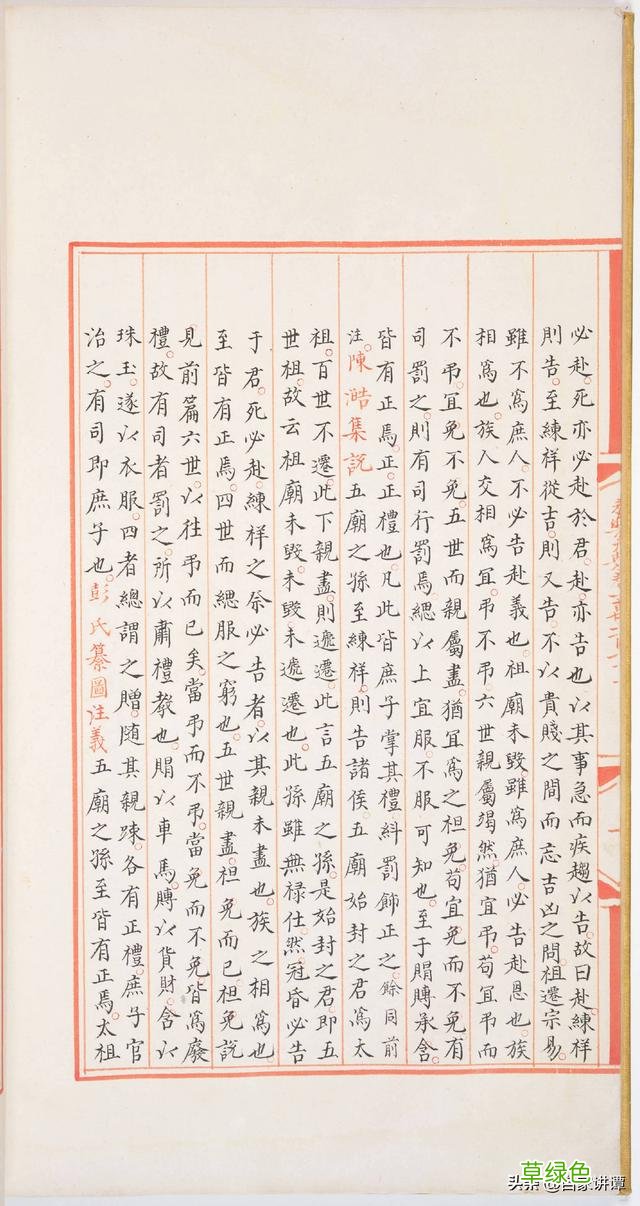 必赴。死亦必赴於君。赴亦告也。以其事急而疾趨以告。故曰赴。練祥
則告。至練祥從吉。則又告。不以貴賤之間而忘吉凶之問。祖遷宗易。
雖不為庶人。不必告赴義也。祖廟未毀。雖為庶人。必告赴恩也。族
相為也。族人交相為冝。弔不弔。六世親屬竭然。猶宜弔。苟宜弔而
不弔。冝免不免。五世而親屬盡。猶冝為之袒免。苟宜免而不免。有
司罰之。則有司行罰焉。緦以上宜服。不服可知也。至于賵賻承含。
皆有正焉。正。正禮也。凡此皆庶子掌其禮。紏罰飾正之。餘同前
注。陳澔集説五廟之孫至練祥。則告諸侯。五廟始封之君為太
祖。百世不遷。此下親盡。則遞遷。此言五廟之孫。是始封之君。即五
世祖。故云祖廟未毀。未毀。未遞遷也。此孫雖無禄仕。然冠昏必告
于君。死必赴。練祥之祭必告者。以其親未盡也。族之相為也
至皆有正焉。四世而緦服之窮也。五世親盡。袒免而已。袒免説
見前篇六世。以往弔而已矣。當弔而不弔。當免而不免。皆為廢
禮。故有司者罰之。所以肅禮教也。賵以車馬。賻以貨財。含以
珠玉。遂以衣服。四者總謂之贈。隨其親踈。各有正禮。庶子官
治之。有司即庶子也。彭氏纂圖注義五廟之孫至皆有正焉。太祖
草绿色
头条 @白家讲谭